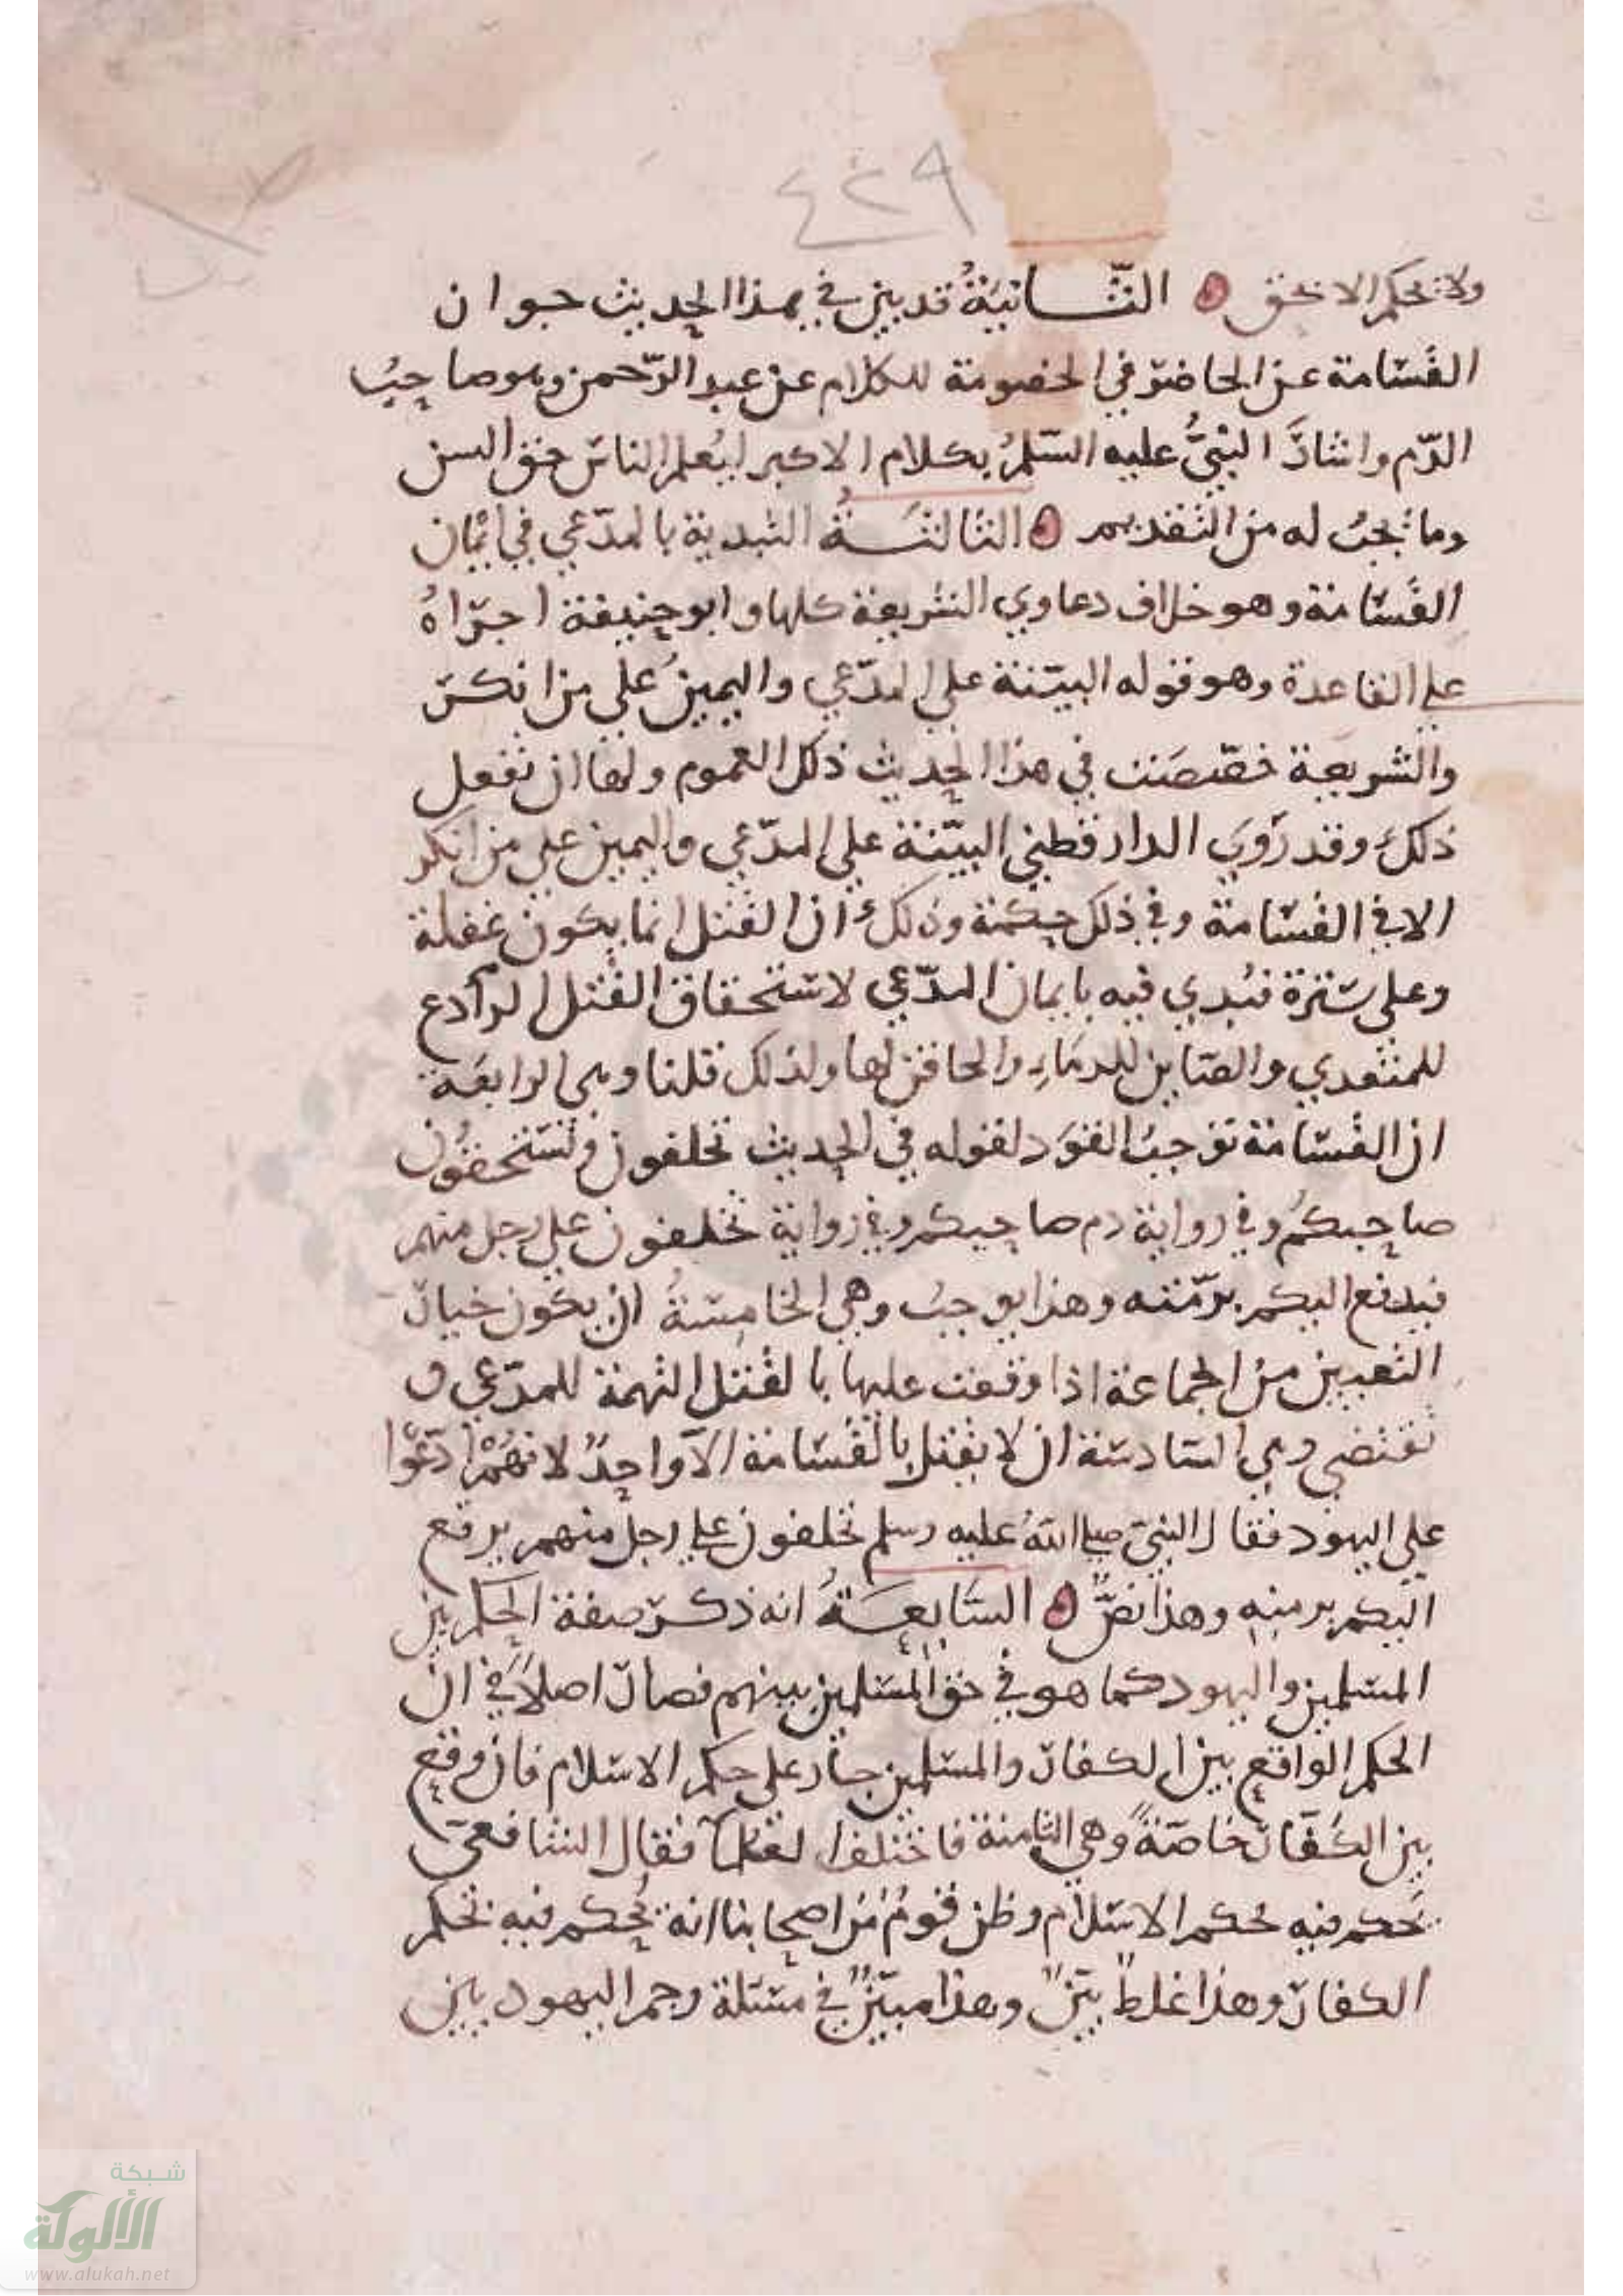 ٤٢٩
ولا نحكم الا بحق ه الثانيةُ قد بين في هذا الحديث جواز
القَسَامة عن الحاضر في الخصومة للكلام عن عبد الرّحمن وهو صاحِبُ
الدّم واشارَ النبيُّ عليه السّلمُ بكلام الاكبر ليُعلم الناسَ حق السن
وما يجبُ له من التقديم ه الثالثةُ التبدية بالمدّعي في ايمان
القَسَامة وهو خلاف دعاوي الشريعة كلها وابو حنيفة اجرَاهُ
علي القاعدة وهو قوله البيّنة علي المدّعي واليمينُ علي من انكرَ
والشريعة خصّصَت في هذا الحديث ذلك العموم ولها ان تفعل
ذلك وقد رَوَي الدارقطني البيّنة علي المدّعي واليمين علي من انكر
الا في القسَامة وفي ذلك حِكمة وذلك ان القتل انما يكون غفلة
وعلي سَترة فبُدِي فيه بايمان المدّعي لاستحقاق القتل الرادع
للمتعدي والصَاين للدمَاءِ والحاقن لها ولذلك قلنا وهي الرابعَة
ان القَسَامة توجبُ القوَد لقوله في الحِديث تحلفون وتستحقون
صاحِبكُم وفي رواية دم صاحِبكم وفي رواية تحلفون علي رجل منهم
فيدفع اليكم برمّته وهذا يوجبُ وهي الخامِسَةُ ان يكون خيار
التعيين من الجماعة اذا وقعت عليها بالقتل التهمة للمدّعي و
تقتضي وهي السَادسَة ان لا يقتل بالقَسَامة الا واحِدٌ لانهُمْ ادّعَوا
علي اليهود فقال النبيّ صلي اللهُ عليه وسلم تحلفون علي رجل منهم يدفع
اليكم برمته وهذا نصٌّ ه السَابعَةُ انه ذكرَ صفة الحِكم بين
المسَلمين واليهود كما هو في حق المسَلمين بينهم فصار اصلاً في ان
الحكم الواقع بين الكفار والمسَلمين جار علي حكم الاسَلام فان وقع
بين الكُفّار خاصّةً وهي الثامنة فاختلف العلمآ فقال الشافعيّ
يَحكم فيه بحكم الاسَلام وظن قومٌ من اصحِابنا انه يُحكم فيه بحكم
الكفار وهذا غلطٌ بيّنٌ وهذا مبيّنٌ في مسَئلة رجم اليهود بين
شبكة
الألوكة
www.alukah.net